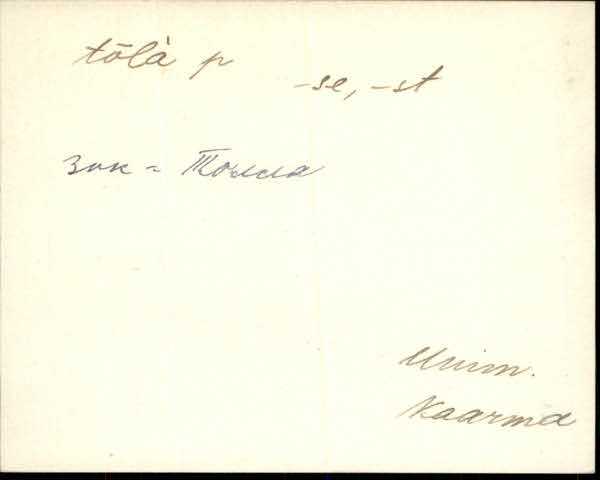 tõlà p
-se, -st
зик = Толла
Unim.
Kaarma